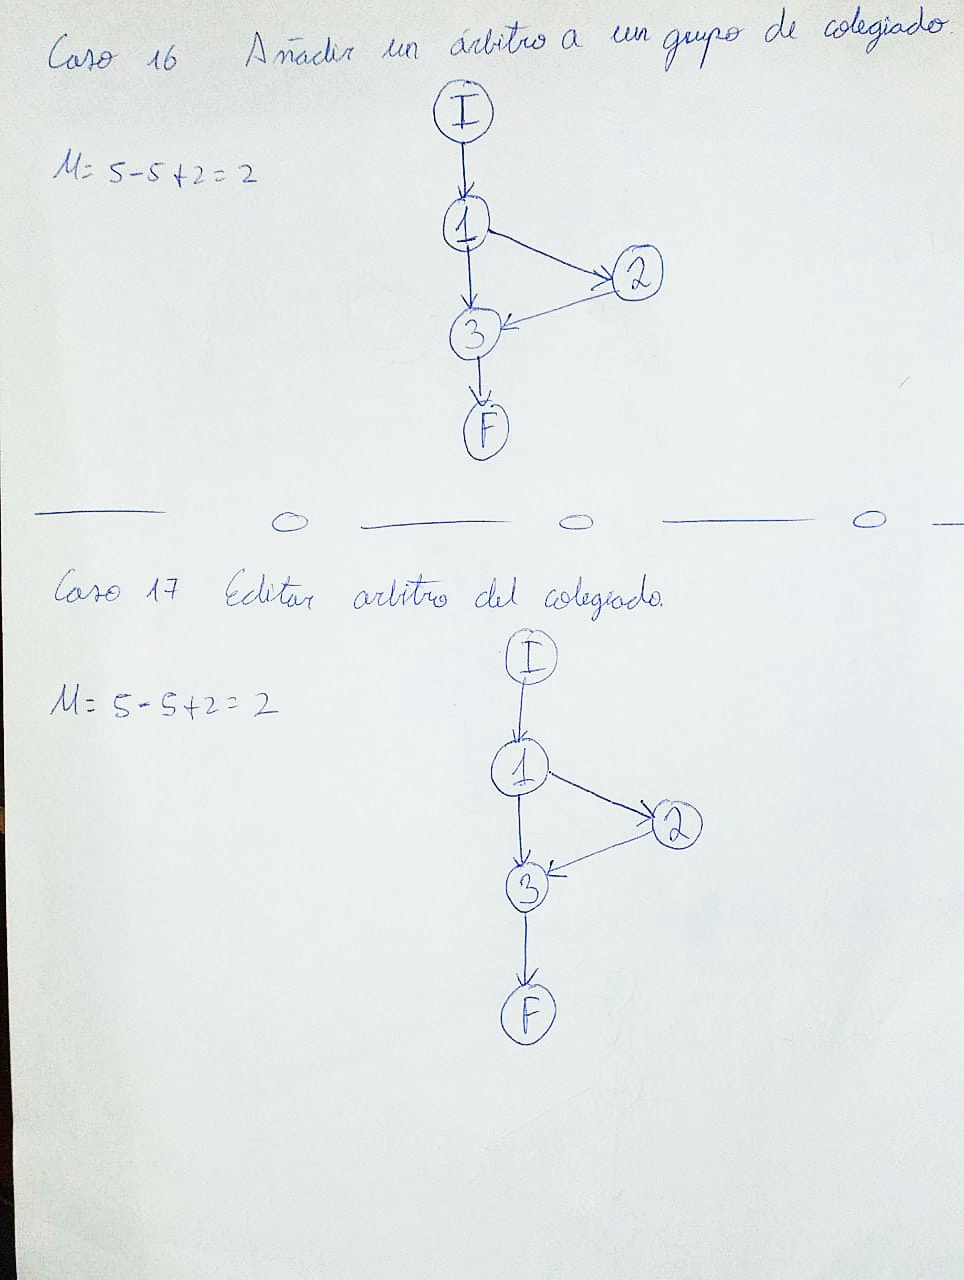 Caso 16 Añadir un árbitro a un grupo de colegiado.
I
M= 5-5+2=2
1
2
3
F
Caso 17 Editar arbitro del colegiado.
I
M= 5-5+2=2
1
2
3
F